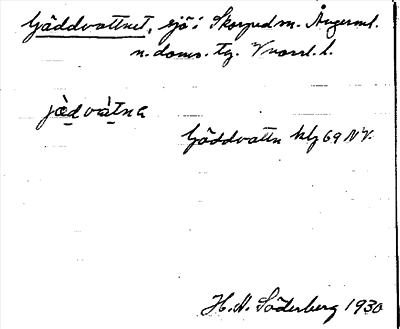 Gäddvattnet, sjö i Skorpedsn. Ångerml.
n. doms. tg. Vnorrl. l.
jèdvàtna
Gäddvattn klg 69 NV.
H. N. Söderberg 1930